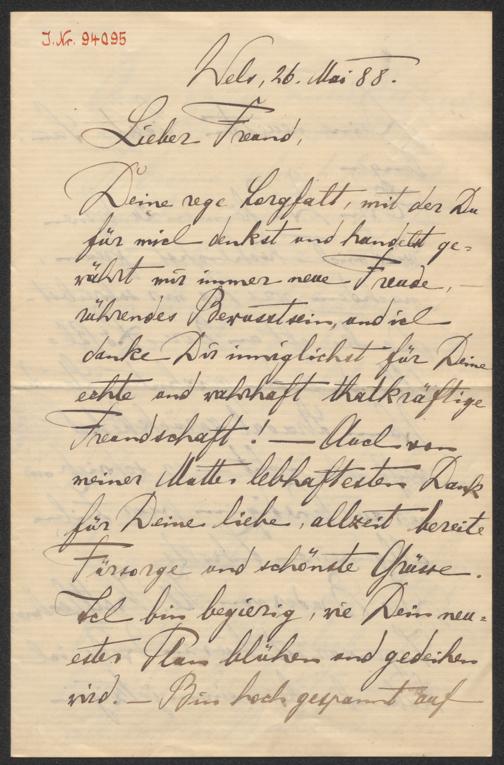 J. Nr. 94095
Wels, 26. Mai 88.
Lieber Freund,
Deine rege Sorgfalt, mit der Du
für mich denkst und handelst ge=
währt mir immer neue Freude, –
rührendes Bewusstsein, und ich
danke Dir inniglichst für Deine
echte und wahrhaft thatkräftige
Freundschaft! — Auch von
meiner Mutter lebhaftesten Dank
für Deine liebe, allzeit bereite
Fürsorge und schönste Grüsse.
Ich bin begierig, wie Dein neu=
ester Plan blühen und gedeihen
wird. – Bin hoch gespannt auf